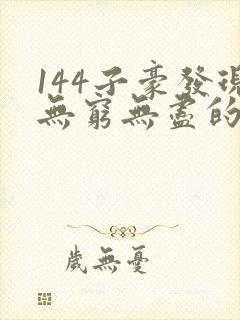 144子豪發現
無窮無盡的
歲無憂